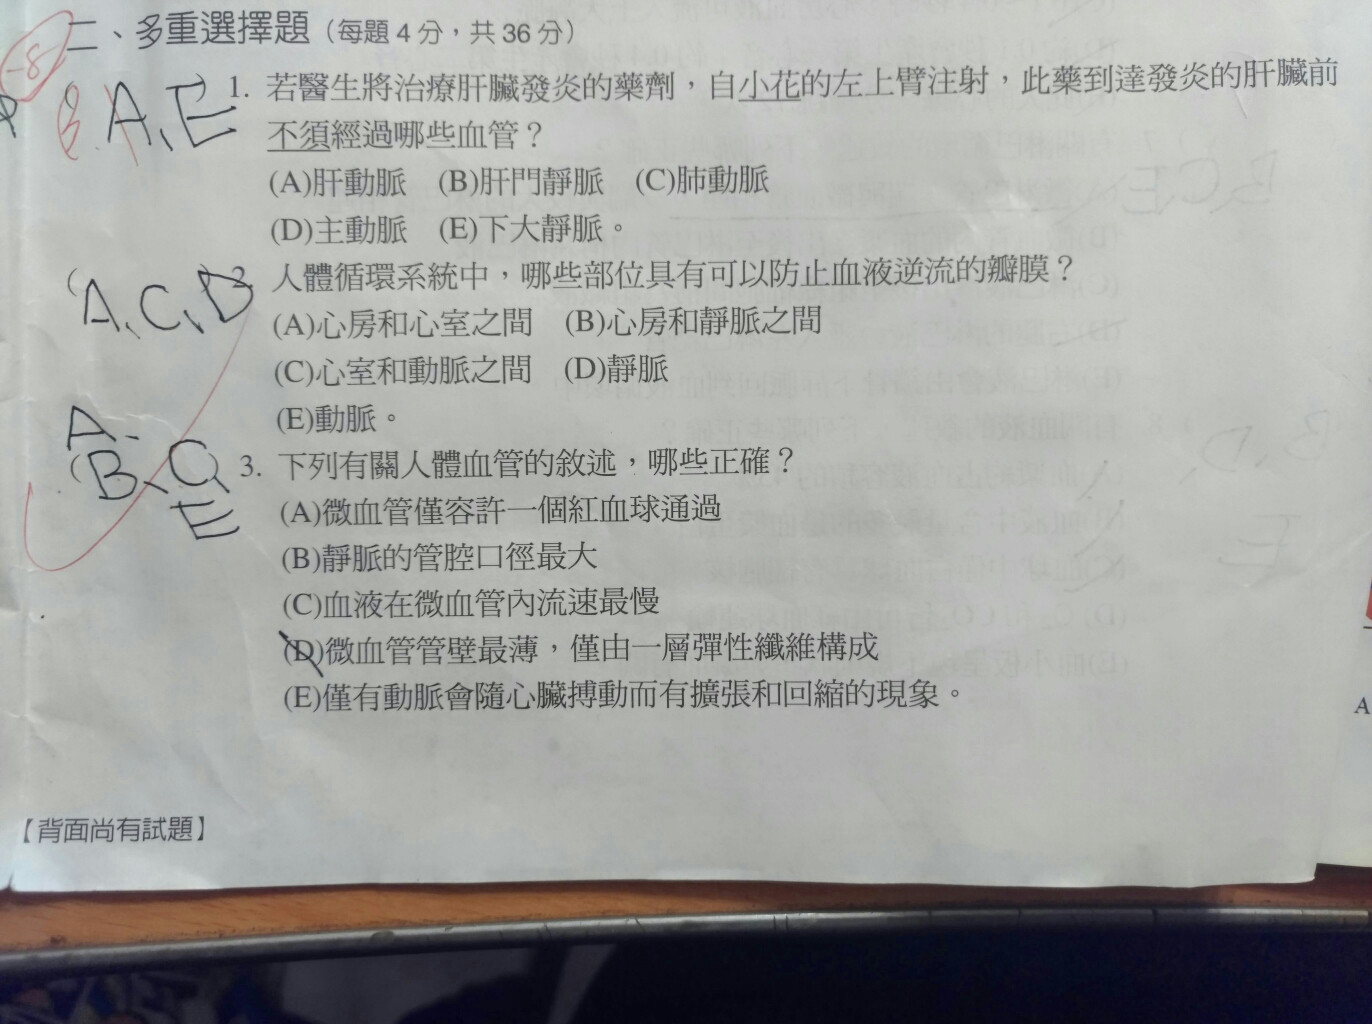 二、多重選擇題（每題 4 分，共 36 分）
-8
A、E
1. 若醫生將治療肝臟發炎的藥劑，自小花的左上臂注射，此藥到達發炎的肝臟前
不須經過哪些血管？
(A)肝動脈 (B)肝門靜脈 (C)肺動脈
(D)主動脈 (E)下大靜脈。
(A、C、D
)2. 人體循環系統中，哪些部位具有可以防止血液逆流的瓣膜？
(A)心房和心室之間 (B)心房和靜脈之間
(C)心室和動脈之間 (D)靜脈
(E)動脈。
A、
(B、C、
E
3. 下列有關人體血管的敘述，哪些正確？
(A)微血管僅容許一個紅血球通過
(B)靜脈的管腔口徑最大
(C)血液在微血管內流速最慢
(D)微血管管壁最薄，僅由一層彈性纖維構成
(E)僅有動脈會隨心臟搏動而有擴張和回縮的現象。
【背面尚有試題】
A